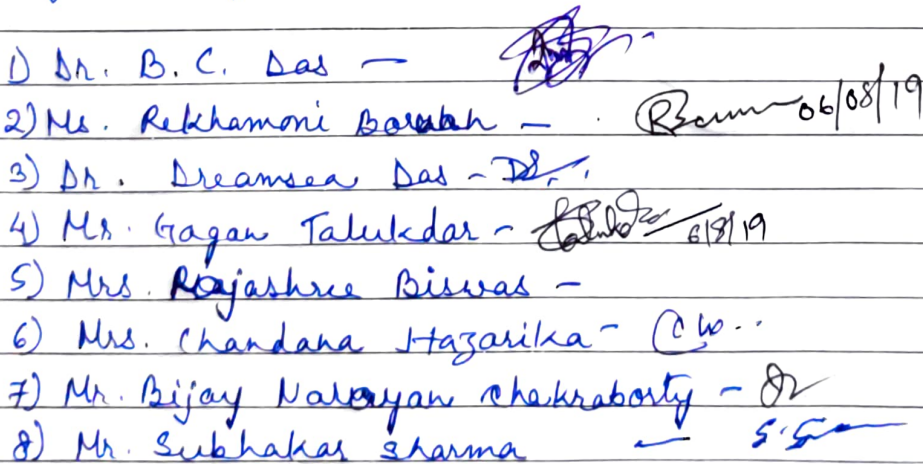 1) Dr. B. C. Das -
2) Ms. Rekhamoni Boruah - 06/08/19
3) Dr. Dreamsea Das -
4) Mr. Gagan Talukdar - 6/8/19
5) Mrs. Rajashree Biswas -
6) Mrs. Chandana Hazarika -
7) Mr. Bijay Narayan Chakraborty -
8) Mr. Subhakar Sharma -